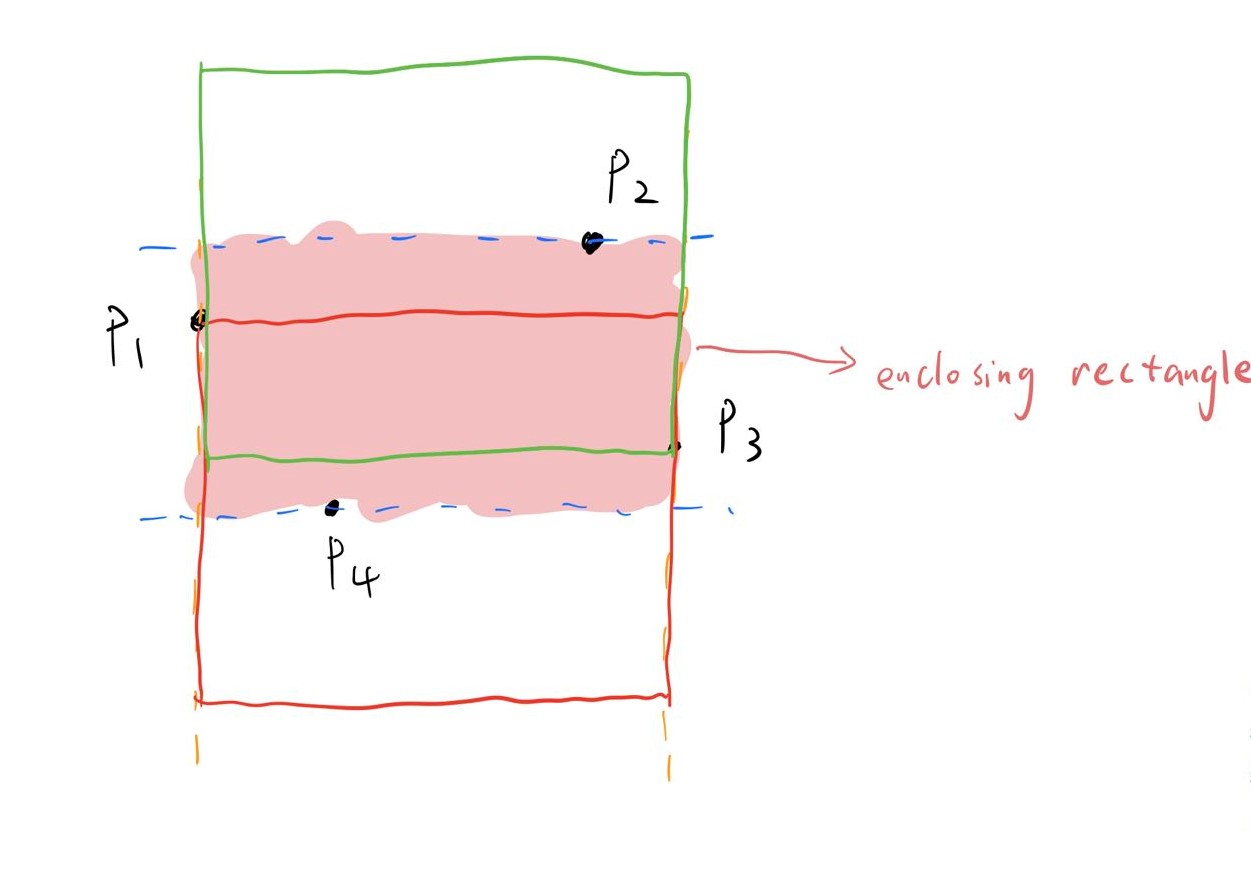 P2
P1
enclosing rectangle
P3
P4